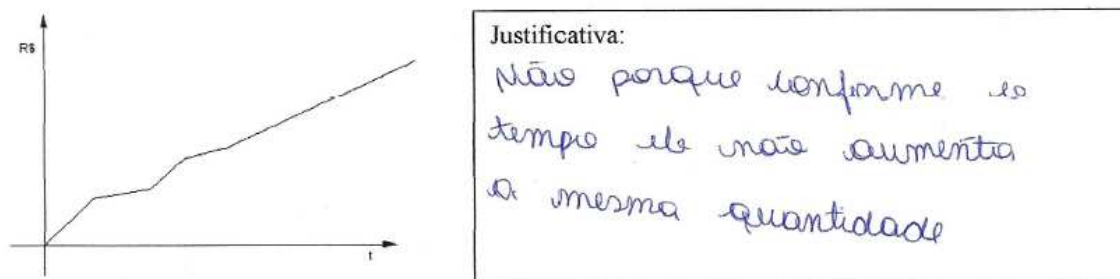 R$
t
Justificativa:
Não porque conforme o
tempo ele não aumenta
a mesma quantidade